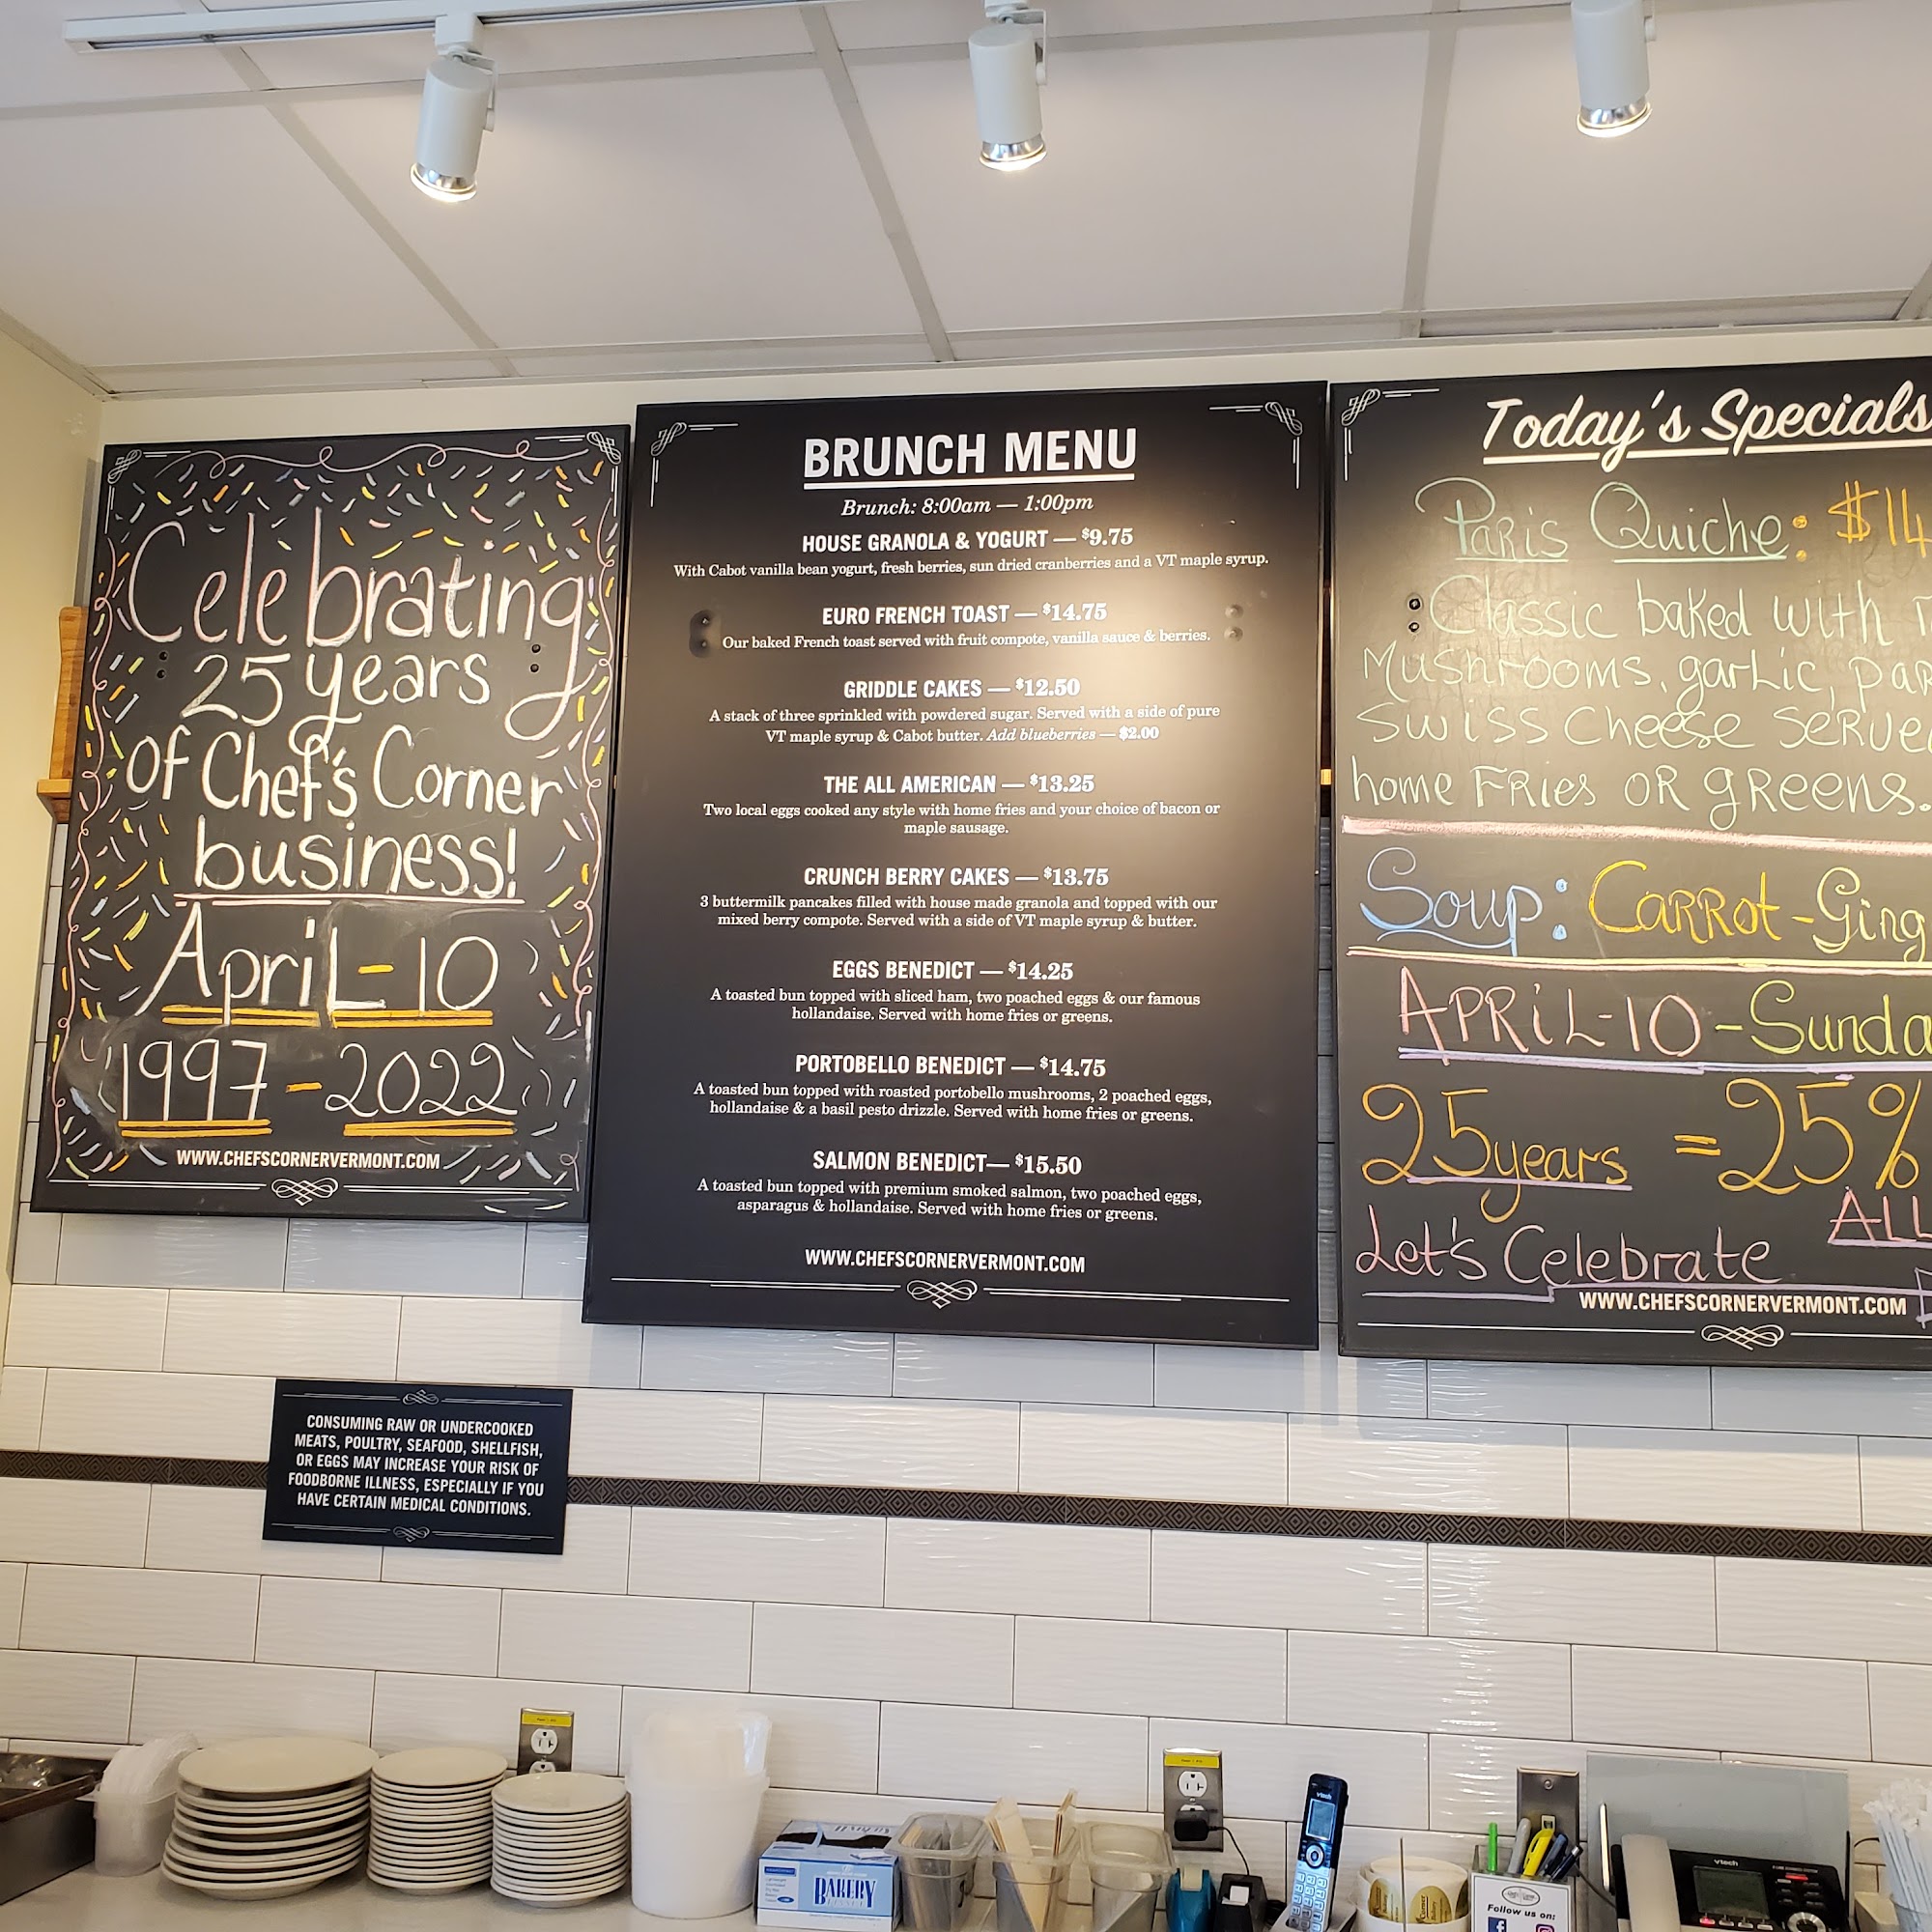 Celebrating
25 years
of Chef's Corner
business!
April-10
1997-2022
WWW.CHEFSCORNERVERMONT.COM
BRUNCH MENU
Brunch: 8:00am — 1:00pm
HOUSE GRANOLA & YOGURT — $9.75
With Cabot vanilla bean yogurt, fresh berries, sun dried cranberries and a VT maple syrup.
EURO FRENCH TOAST — $14.75
Our baked French toast served with fruit compote, vanilla sauce & berries.
GRIDDLE CAKES — $12.50
A stack of three sprinkled with powdered sugar. Served with a side of pure
VT maple syrup & Cabot butter. Add blueberries — $2.00
THE ALL AMERICAN — $13.25
Two local eggs cooked any style with home fries and your choice of bacon or
maple sausage.
CRUNCH BERRY CAKES — $13.75
3 buttermilk pancakes filled with house made granola and topped with our
mixed berry compote. Served with a side of VT maple syrup & butter.
EGGS BENEDICT — $14.25
A toasted bun topped with sliced ham, two poached eggs & our famous
hollandaise. Served with home fries or greens.
PORTOBELLO BENEDICT — $14.75
A toasted bun topped with roasted portobello mushrooms, 2 poached eggs,
hollandaise & a basil pesto drizzle. Served with home fries or greens.
SALMON BENEDICT— $15.50
A toasted bun topped with premium smoked salmon, two poached eggs,
asparagus & hollandaise. Served with home fries or greens.
WWW.CHEFSCORNERVERMONT.COM
Today's Specials
Paris Quiche: $14
Classic baked with
Mushrooms, garlic, par
Swiss Cheese serve
home Fries OR greens.
Soup: Carrot-Ging
April-10-Sunda
25years =25%
ALL
Let's Celebrate
WWW.CHEFSCORNERVERMONT.COM
CONSUMING RAW OR UNDERCOOKED
MEATS, POULTRY, SEAFOOD, SHELLFISH,
OR EGGS MAY INCREASE YOUR RISK OF
FOODBORNE ILLNESS, ESPECIALLY IF YOU
HAVE CERTAIN MEDICAL CONDITIONS.
BAKERY
vtech
vtech
Follow us on: